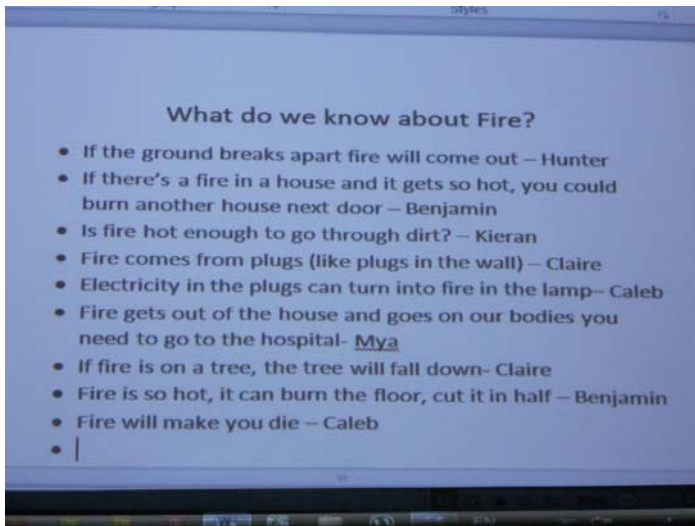 Styles
What do we know about Fire?
• If the ground breaks apart fire will come out – Hunter
• If there's a fire in a house and it gets so hot, you could
burn another house next door – Benjamin
• Is fire hot enough to go through dirt? – Kieran
• Fire comes from plugs (like plugs in the wall) – Claire
• Electricity in the plugs can turn into fire in the lamp– Caleb
• Fire gets out of the house and goes on our bodies you
need to go to the hospital- Mya
• If fire is on a tree, the tree will fall down- Claire
• Fire is so hot, it can burn the floor, cut it in half – Benjamin
• Fire will make you die – Caleb
•